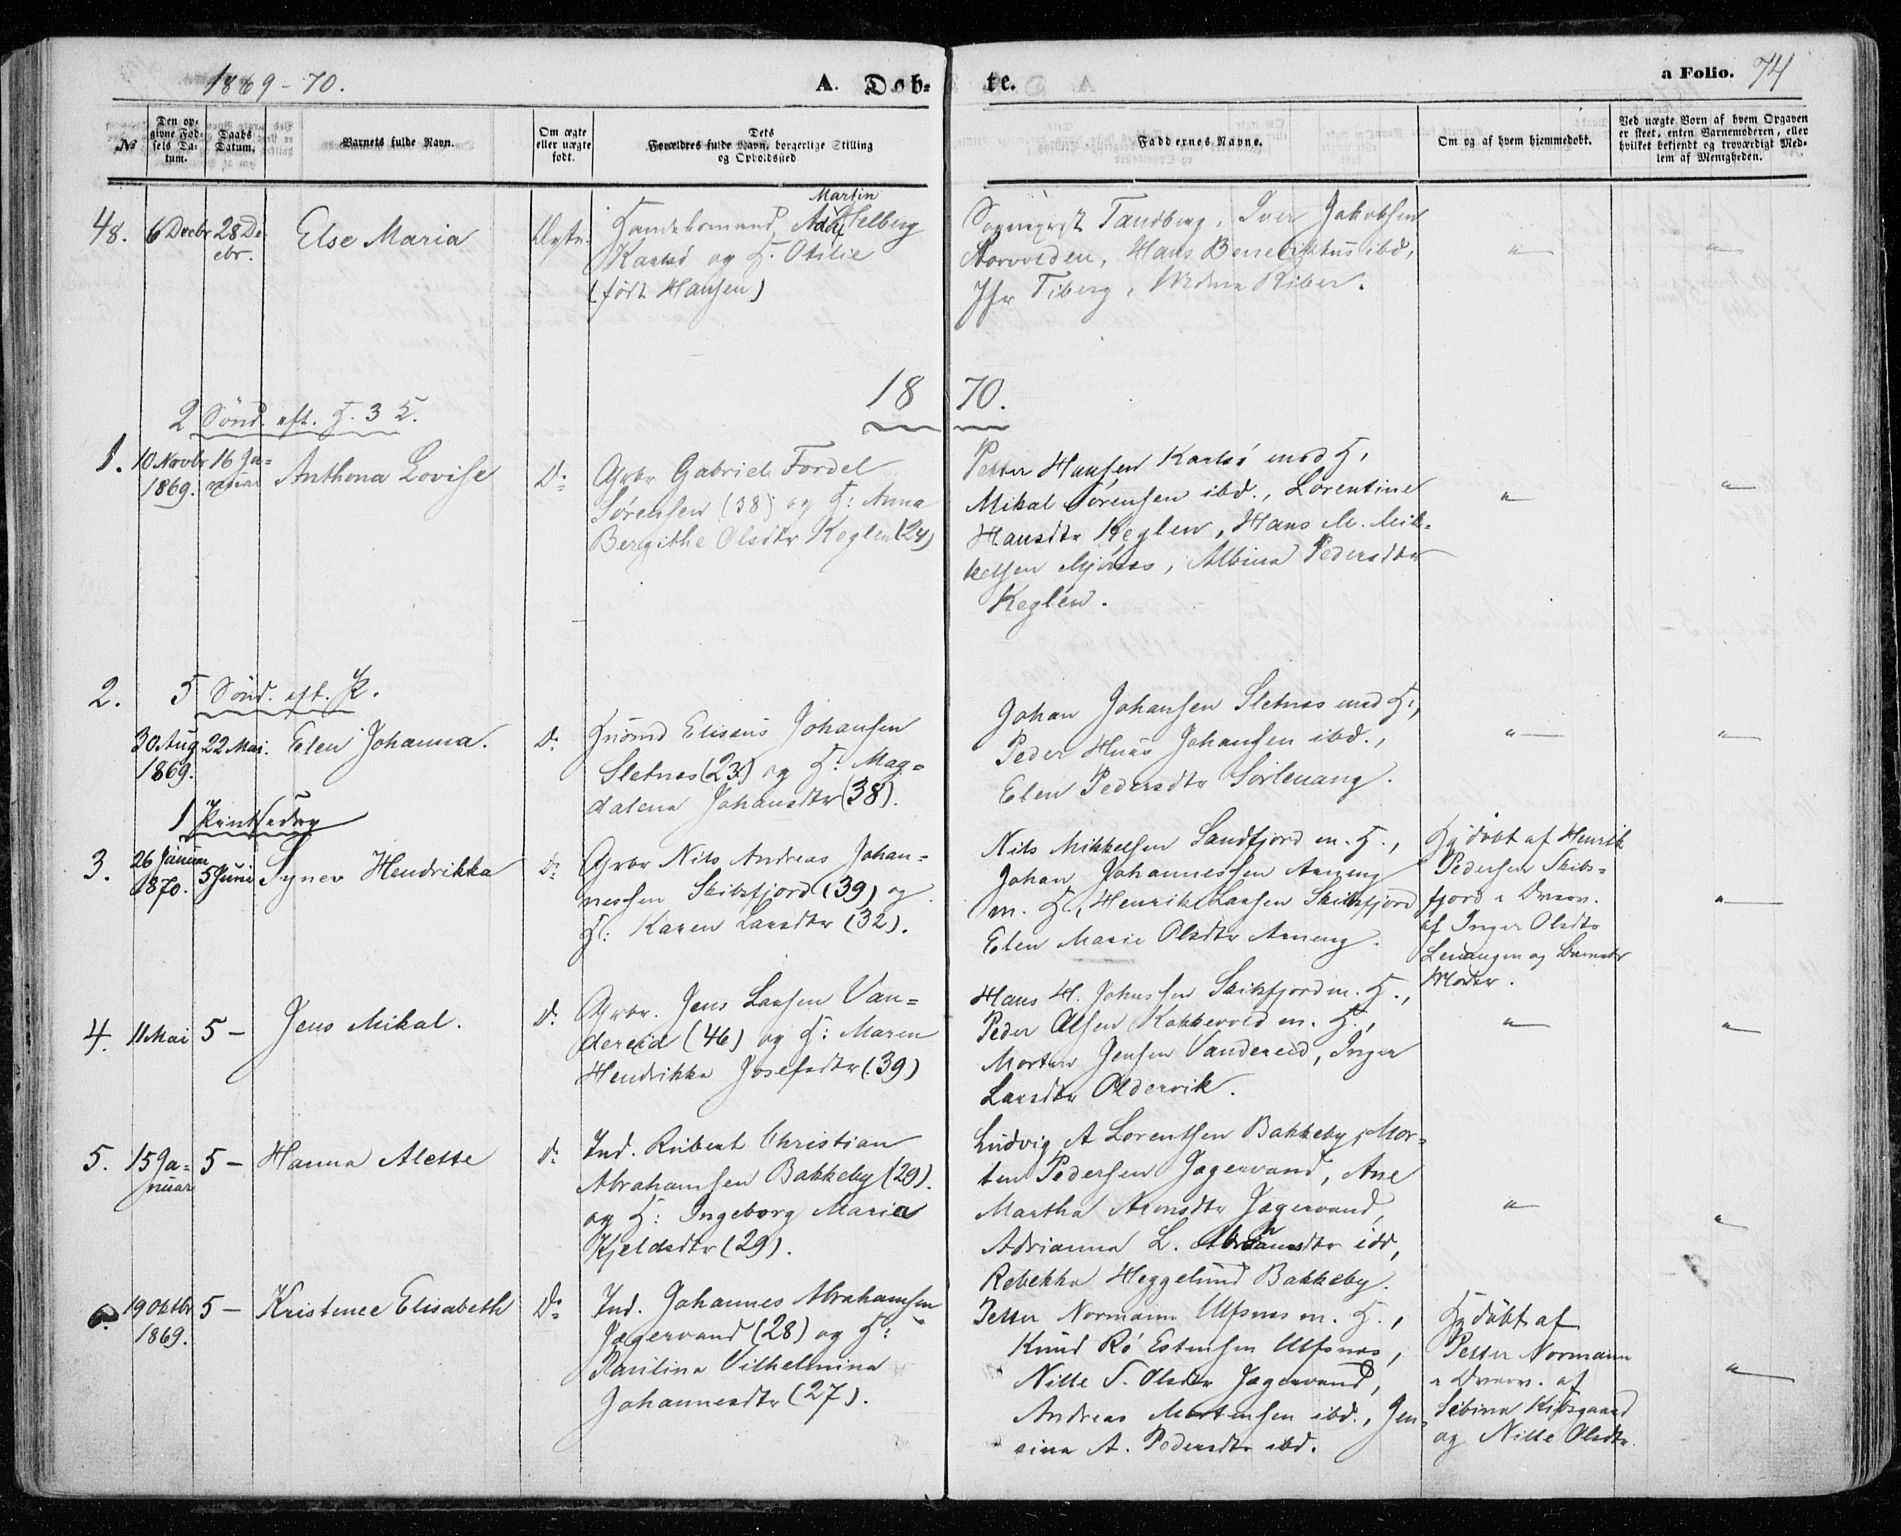 1869-70.
A. Døb-
te.
a Folio. 74
No
Den op-
givne Fød-
sels Da-
tum.
Daabs
Datum.
Barnets fulde Navn.
Om ægte
eller uægte
født.
Dets
Forældres fulde Navn, borgerlige Stilling
og Opholdssted
Faddernes Navne.
Om og af hvem hjemmedøbt.
Ved uægte Børn af hvem Opgaven
er skeet, enten Barnemoderen, eller
hvilket bekjendt og troværdigt Med-
lem af Menigheden.
48.
6 Decbr
28 De-
cbr.
Else Maria
Ægte.
Martin
Handelsmand Adolf Selberg
Karlsø og H. Otilie
(født Hansen)
Sogneprest Tandberg, Iver Jakobsen
Storvolden, Hans Benediktus ibd,
Jfr Tiberg, Mdme Kiber.
"
"
18 70.
2 Sønd. eft. H. 3 K.
1.
10 Novbr
1869.
16 Ja-
nuar
Anthona Lovise
Do
Grbr Gabriel Fordel
Sørensen (38) og H: Anna
Bergithe Olsdtr Keglen (24)
Petter Hansen Karlsø med H,
Mikal Sørensen ibd., Lorentine
Hansdtr Keglen, Hans M. Mik-
kelsen Mjønes, Albina Pedersdtr
Keglen.
"
"
2.
5 Sønd. eft. P.
30 Aug
1869.
22 Mai.
Elen Johanna.
Do
Husmd Eliseus Johansen
Sletnes (23) og H: Mag-
dalena Johansdtr (38).
Johan Johansen Sletnes med H.,
Peder Huus Johansen ibd.,
Elen Pedersdtr Sørlenang.
"
"
1 Pintsedag
3.
26 Januar
1870.
5 Juni
Synev Hendrikka
Do
Grbr Nils Andreas Johan-
nessen Skibsfjord (39) og
H: Karen Larsdtr (32).
Nils Mikkelsen Sandfjord m. H.,
Johan Johannessen Arneng
m. H., Henrik Larsen Skibsfjord
Elen Marie Olsdtr Arneng.
Hjdøbt af Henrik
Pedersen Skibs-
fjord i Overv.
af Inger Olsdtr
Lenangen og Barnets
Moder.
"
4.
11 Mai
5 –
Jens Mikal.
Do
Grbr. Jens Larsen Van-
dereid (46) og H: Maren
Hendrikka Josefsdtr (39)
Hans H. Johnsen Skibsfjord m. H.,
Peder Olsen Kokkevold m. H.,
Morten Jensen Vandereid, Inger
Larsdtr Oldervik.
"
"
5.
15 Ja-
nuar
5 –
Hanna Alette
do
Ind. Rubert Christian
Abrahamsen Bakkeby (29).
og H: Ingeborg Maria
Kjeldsdtr (29).
Ludvig A Lorentsen Bakkeby, Mor-
ten Pedersen Jægervand, Ane
Martha Arensdtr Jægervand,
Adrianna L. Abrahamsdtr idd,
Rebekka Heggelund Bakkeby.
"
"
6.
19 Oktbr
1869.
5 –
Kristence Elisabeth
Do
Ind. Johannes Abrahamsen
Jægervand (28) og H:
Paulina Vilhelmina
Johannesdtr (27).
Petter Normann Ulfsnes m. H.,
Knud Rø Estensen Ulfsnes,
Nille S. Olsdtr Jægervand,
Andreas Mortensen ibd., Jen-
sina A. Pedersdtr ibd.
Hjdøbt af
Petter Normann
i Overv. af
Sebina Kildsgaard
og Nille Olsdtr.
"